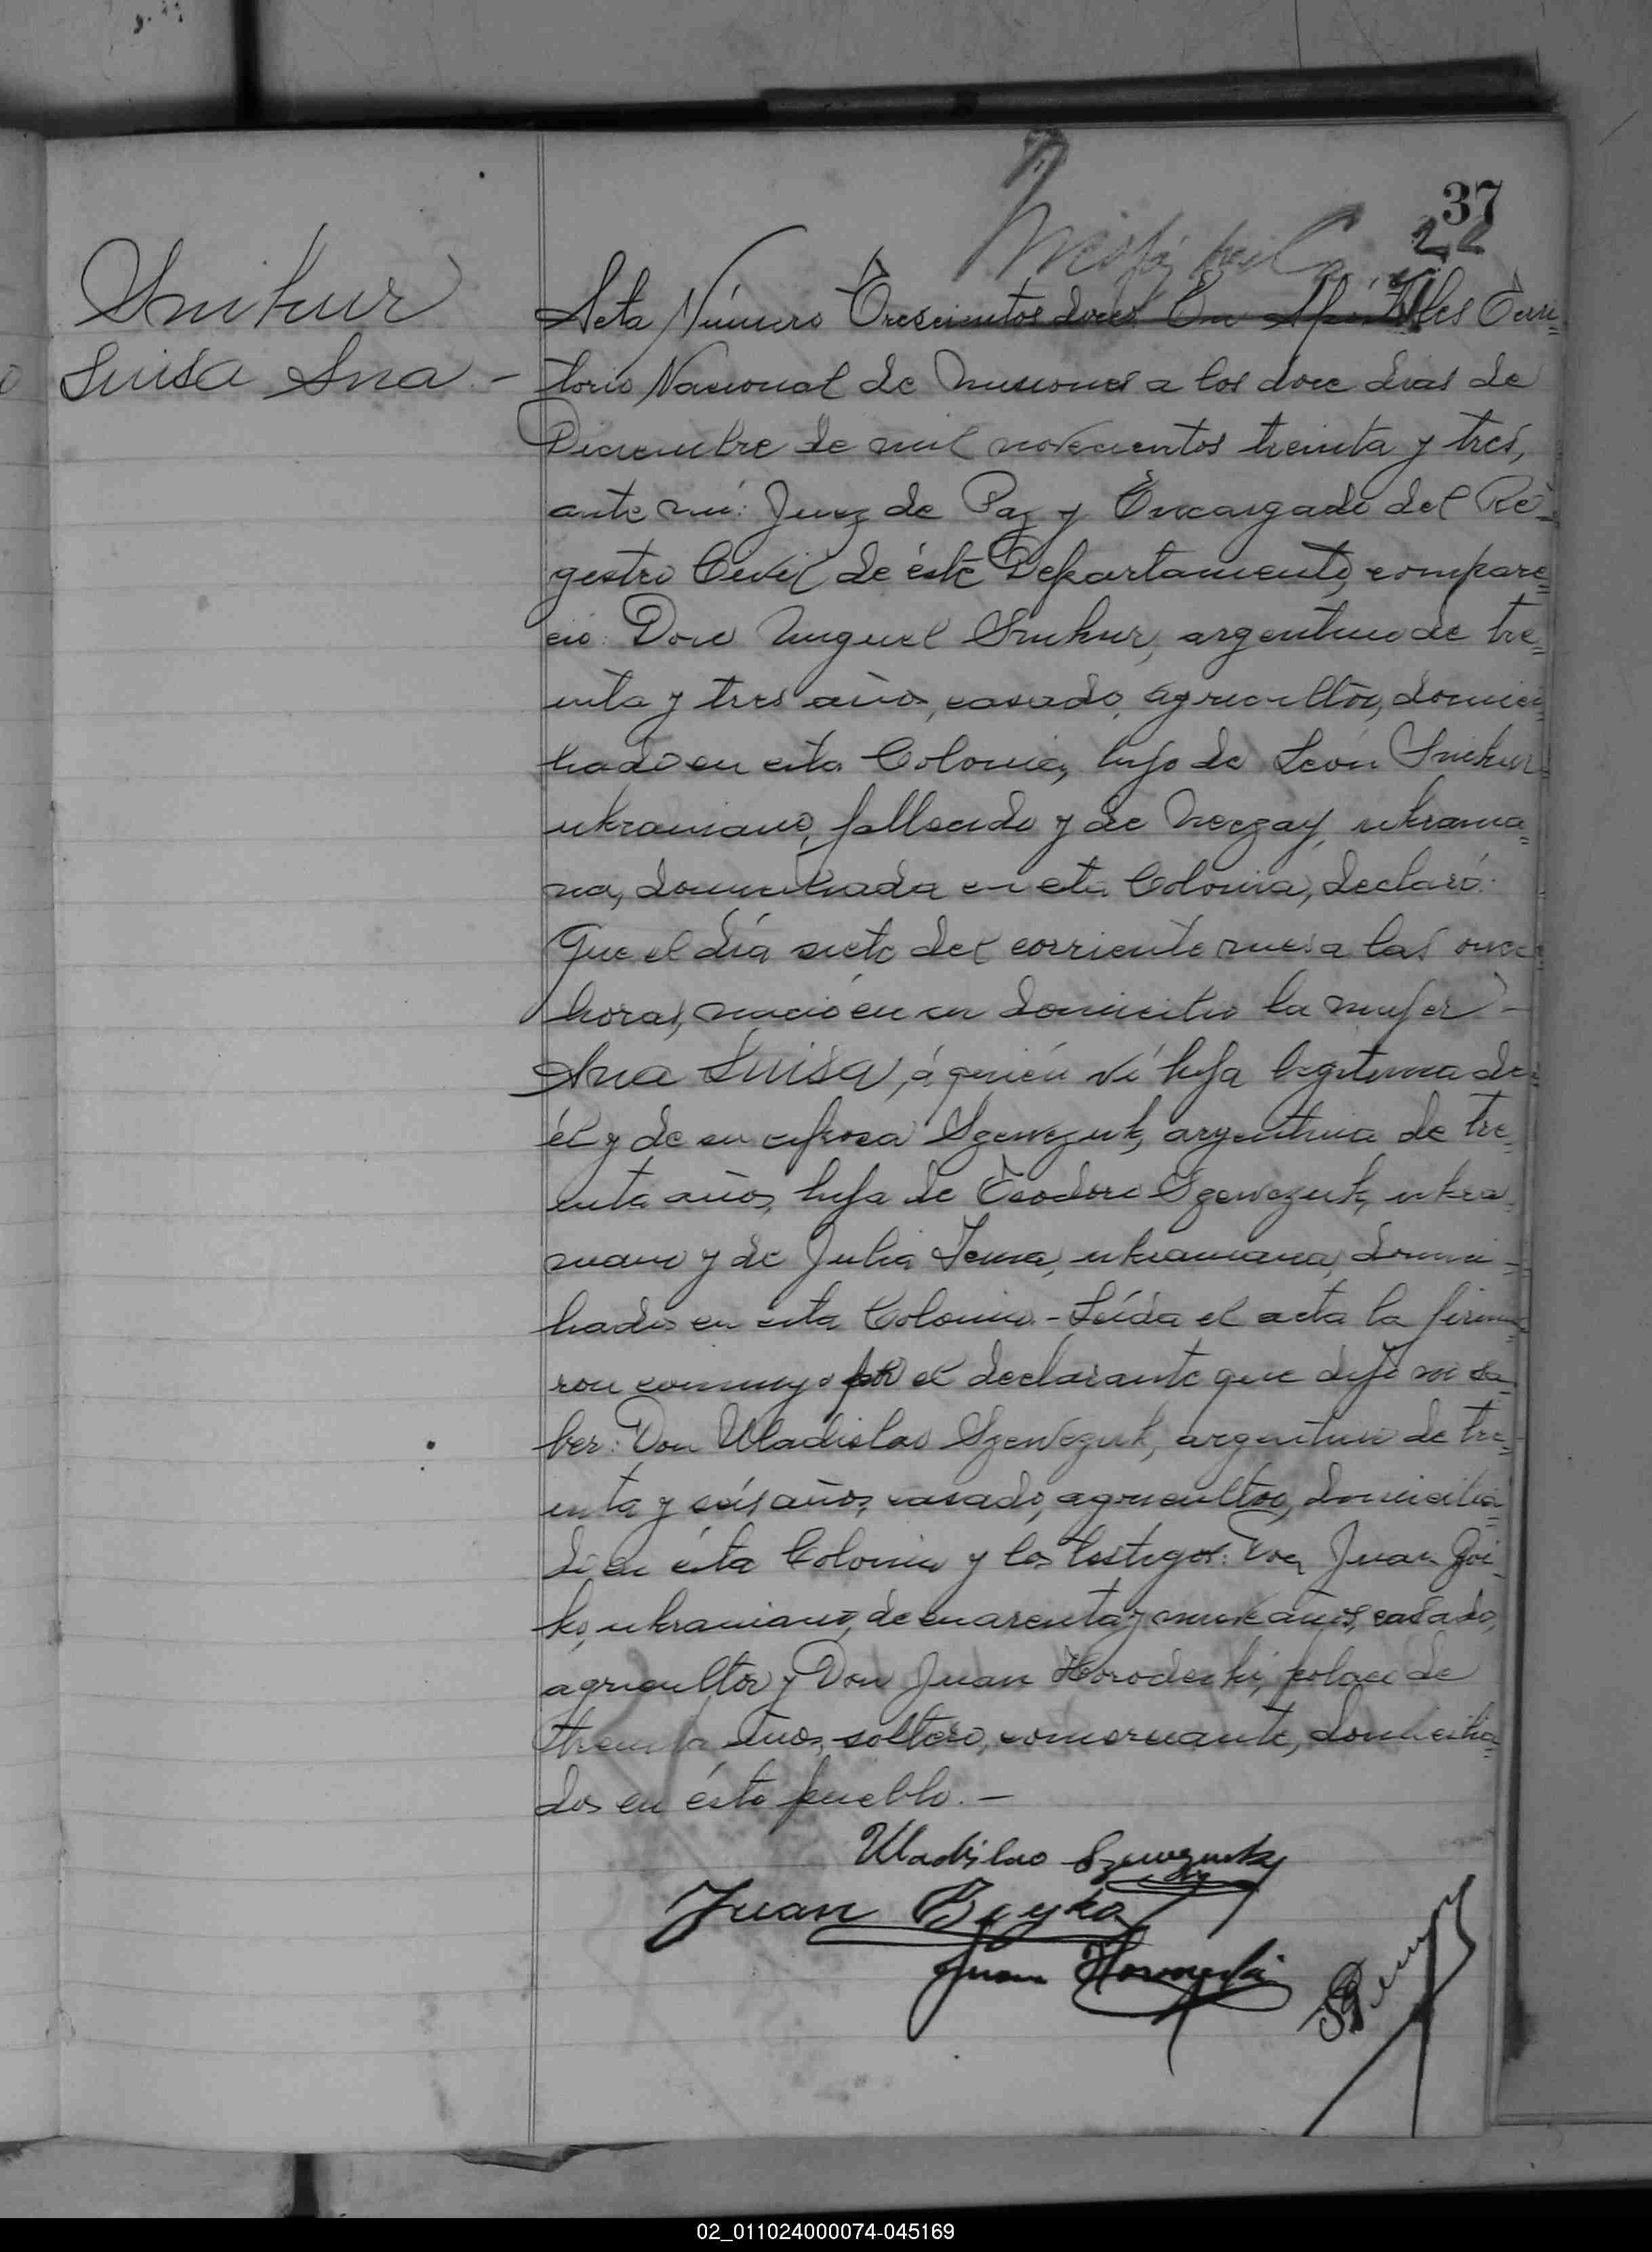 37
22
Snihur
Luisa Ana.-
Acta Número Trescientos doce. En Apóstoles Terri=
torio Nacional de Misiones a los doce dias de
Diciembre de mil novecientos treinta y tres,
ante mí: Juez de Paz y Encargado del Re=
gistro Civil de éste Departamento, compare=
ció: Don Miguel Snihur, argentino de tre=
inta y tres años, casado, agricultor, domici=
liado en esta Colonia, hijo de León Snihur
ukraniano, fallecido y de ukrania=
na, domiciliada en esta Colonia, declaró:
Que el día siete del corriente mes a las once
horas, nació en su domicilio la mujer -
Ana Luisa, á quién ví hija legitima de
él y de su esposa Szewczuk, argentina de tre=
inta años, hija de Teodoro Szewczuk, ukra=
niano y de Julia ukraniana, domici=
liados en esta Colonia.- Leída el acta la firma=
ron conmigo por el declarante que dijo no sa=
ber: Don Uladislao Szewczuk, argentino de tre=
inta y seis años, casado, agricultor, domicilia=
do en ésta Colonia y los testigos: Don Juan Boi=
ko, ukraniano, de cuarenta y nueve años, casado,
agricultor y Don Juan Horodeski, polaco de
treinta años, soltero, comerciante, domicilia=
dos en éste pueblo.-
Uladislao Szewczuk
Juan Boyko
Juan Horodeski
02_011024000074-045169